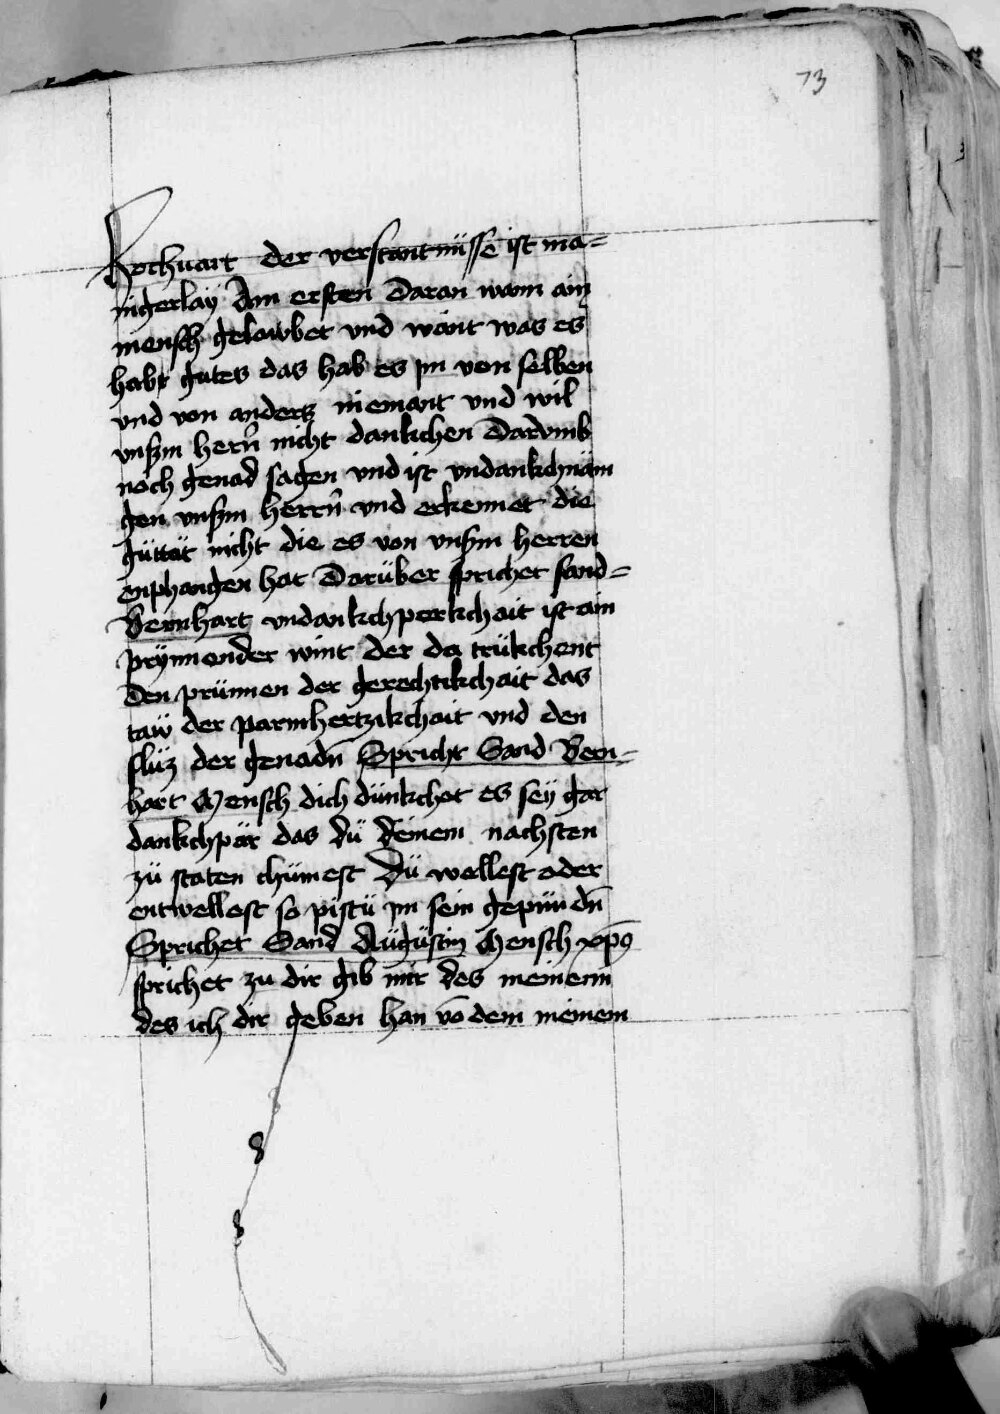 73
Hochuart der verstantnüsse ist ma=
nigerlay Am ersten Daran wann ain
mensch gelawbet vnd wänt was es
habe gutes das hab es ym von selben
vnd von anders niemant vnd wil
vnsm herñ nicht dankchen Darvmb
noch genad sagen vnd ist vndankchnäm
gen vnsm herrñ vnd erkennet die
güttät nicht die es von vnsm herren
enphangen hat Darüber sprichet sand=
Bernhart vndankchperkchait ist ain
prynnender wint der da trükchent
den prünnen der gerechtikchait das
taw der parmhertzikchait vnd den
fluz der genadñ Spricht Sand Bern=
hart Mensch dich dünkchet es sey gar
dankchpär das dü deinem nachsten
zü staten chümest Dü wellest oder
entwellest so pistü ym sein gepundñ
Sprichet Sand Augustin Mensch xp̄s
sprichet zu dir gib mir des meinem
des ich dir geben han vō dem meinem